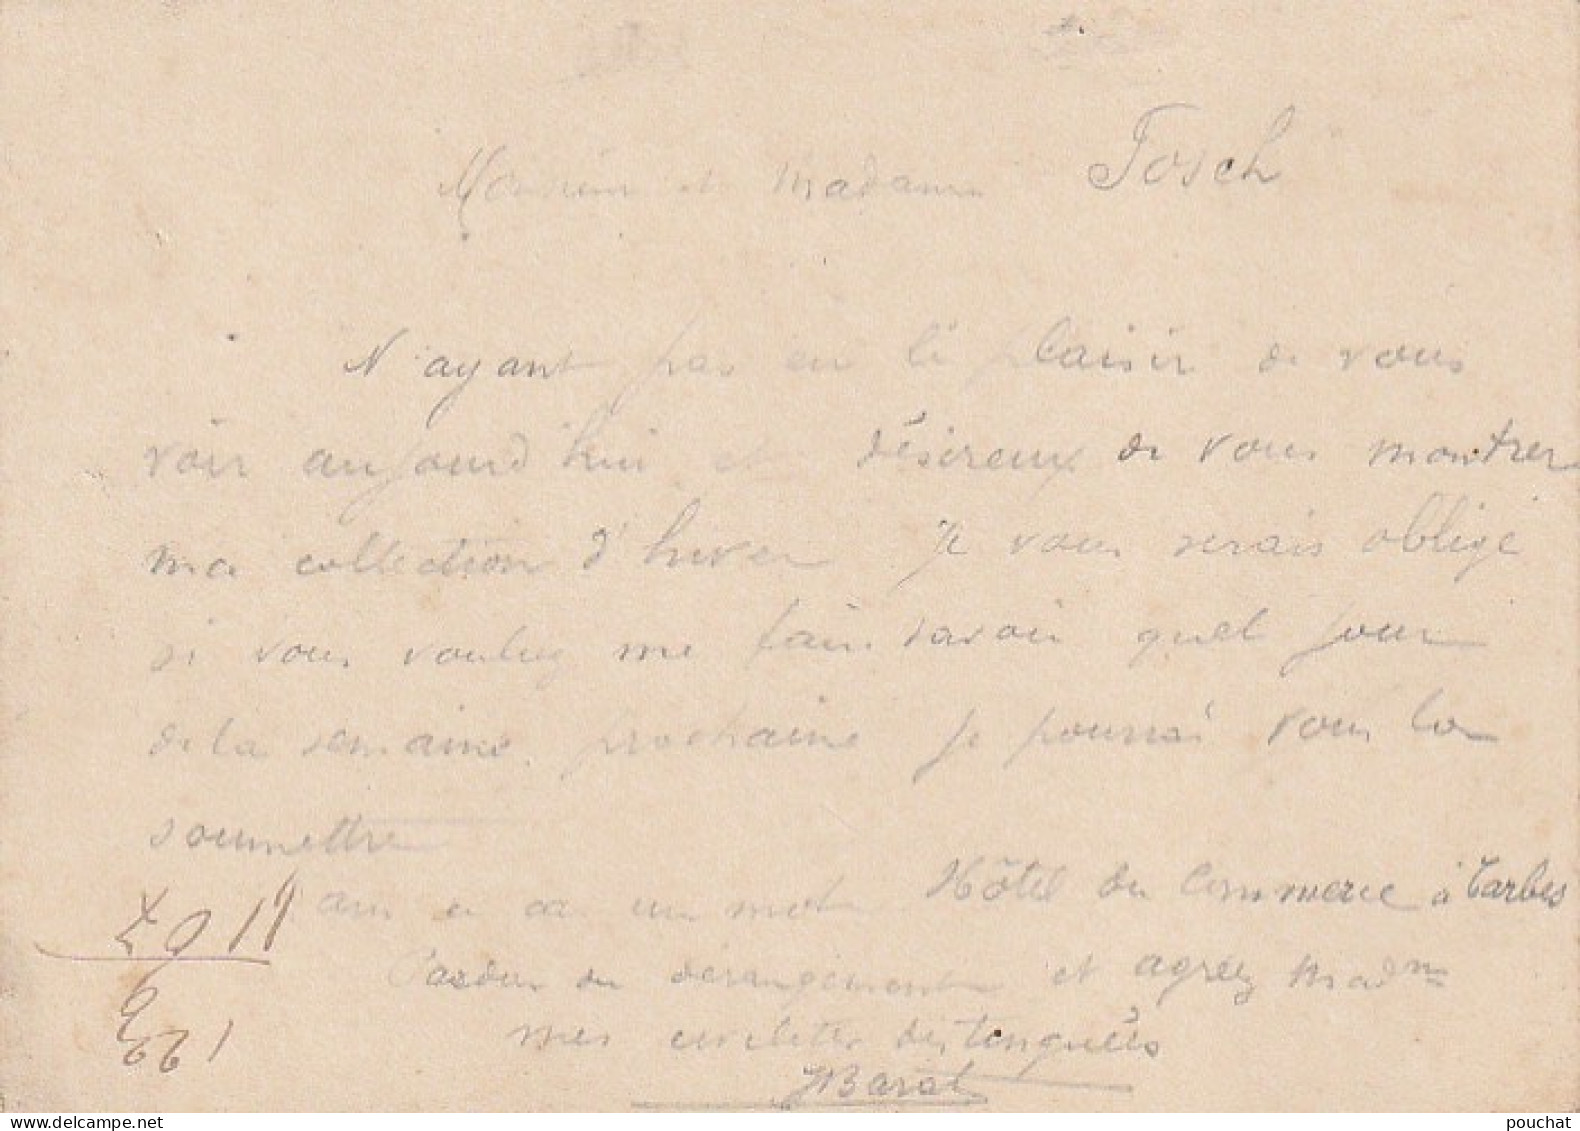 Monsieur et Madame Tosch
N'ayant pas eu le plaisir de vous
voir aujourd'hui et désireux de vous montrer
ma collection d'hiver je vous serais obligé
si vous vouliez me faire savoir quel jour
de la semaine prochaine je pourrai vous la
soumettre
un mot Hôtel du Commerce à Tarbes
Pardon du dérangement et agréez Madme
mes civilités distinguées
Barat
delcampe.net
pouchat